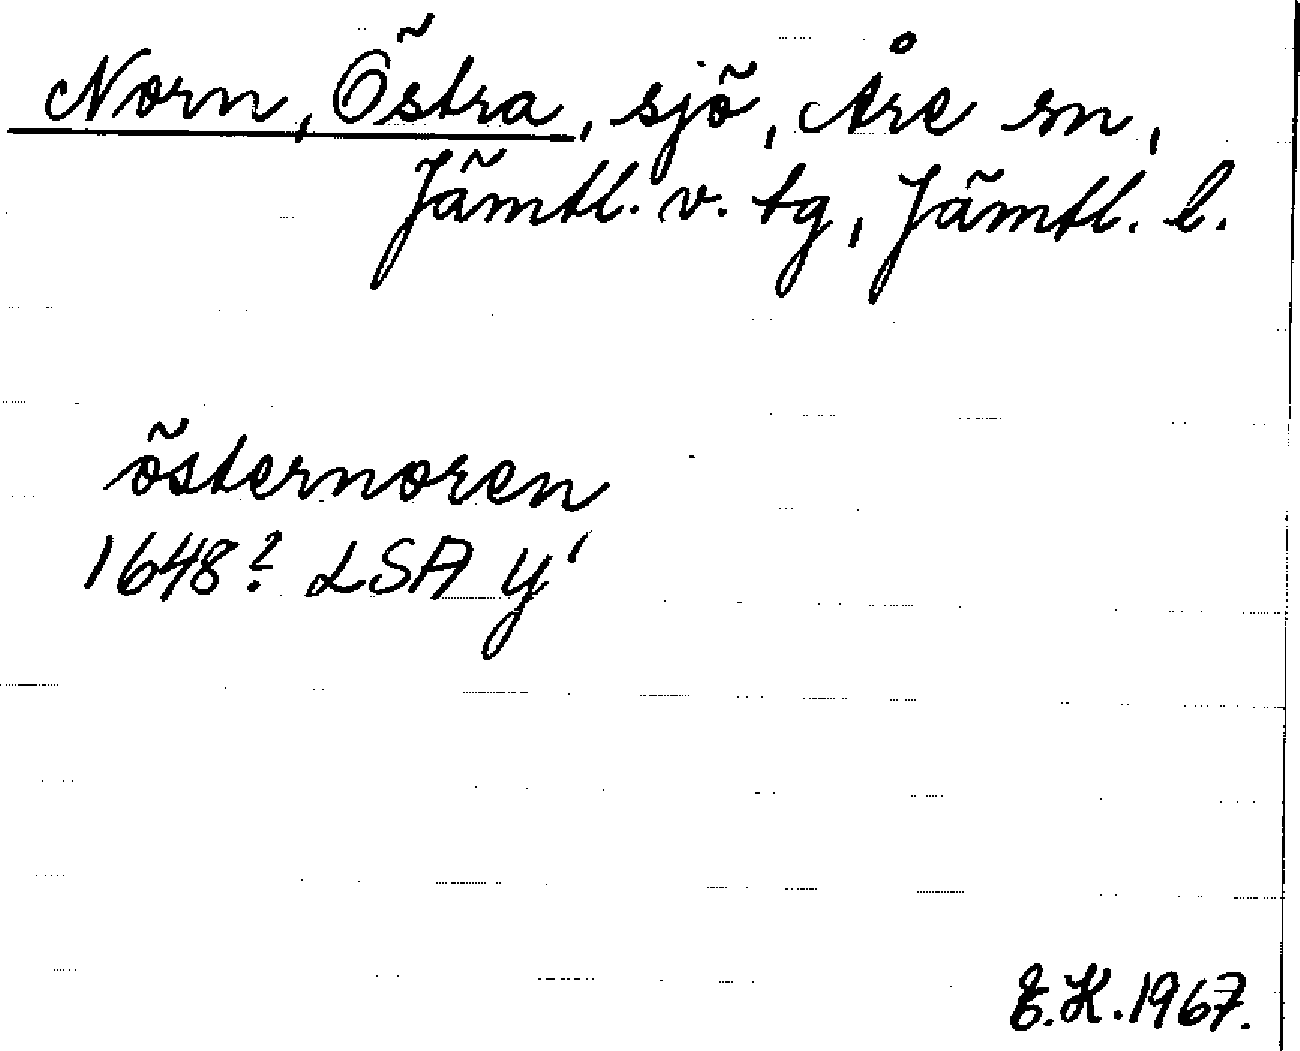 Norn, Östra, sjö, Åre sn,
Jämtl. v. tg, Jämtl. l.
östernoren
1648? LSA y'
E.H. 1967.